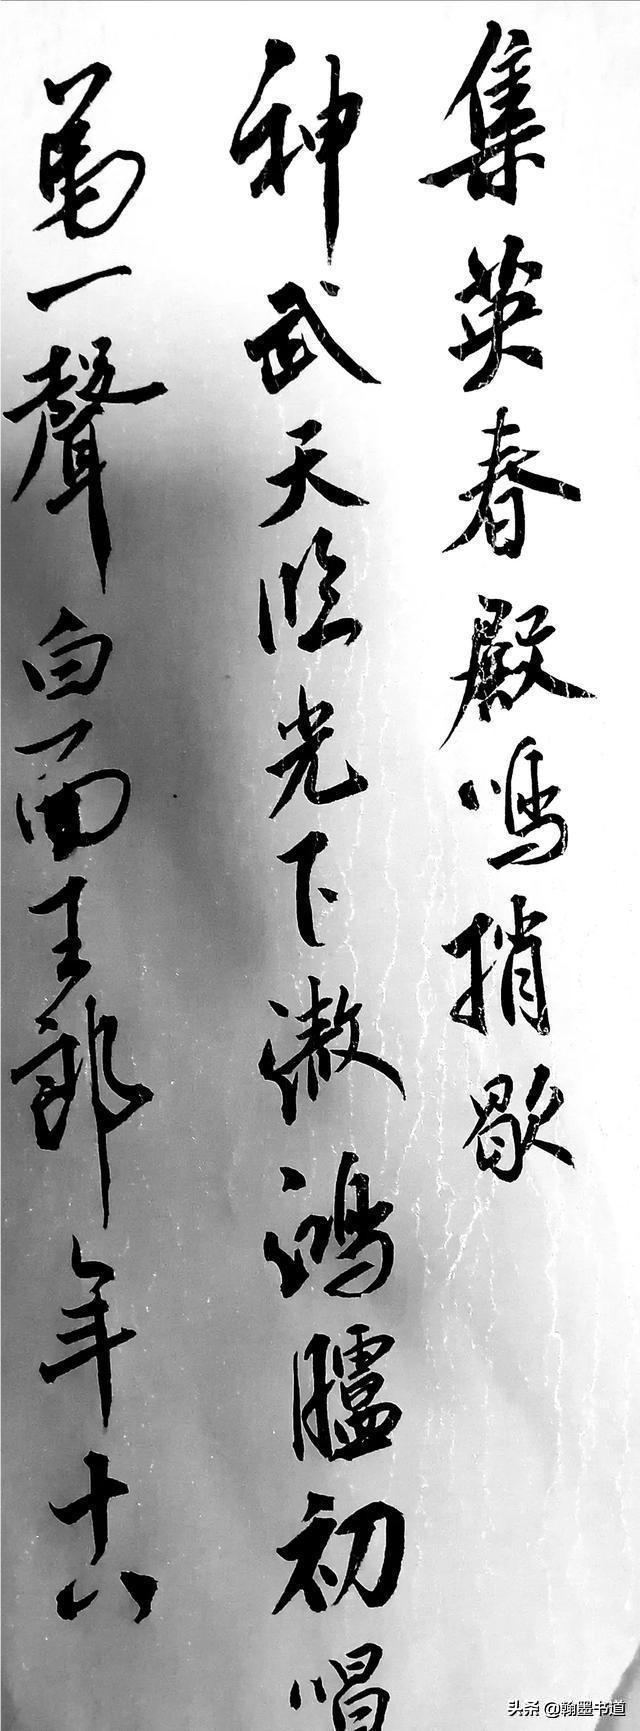 集英春殿鳴捎歇
神武天臨光下澈鴻臚初唱
第一聲白面王郎年十八
头条 @翰墨书道